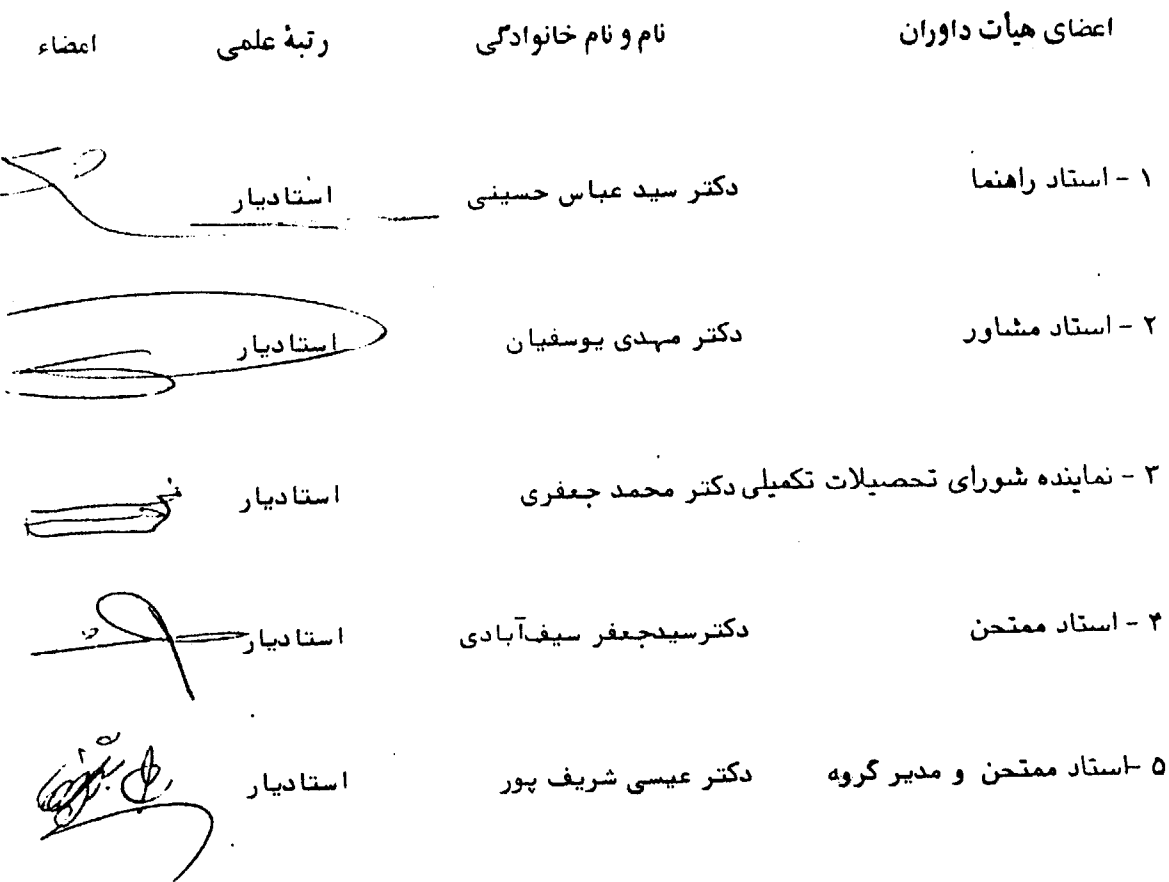 اعضای هیأت داوران نام و نام خانوادگی رتبهٔ علمی امضاء
۱ - استاد راهنما دکتر سید عباس حسینی استادیار
۲ - استاد مشاور دکتر مهدی یوسفیان استادیار
۳ - نماینده شورای تحصیلات تکمیلی دکتر محمد جعفری استادیار
۴ - استاد ممتحن دکترسیدجعفر سیف‌آبادی استادیار
۵ -استاد ممتحن و مدیر گروه دکتر عیسی شریف پور استادیار